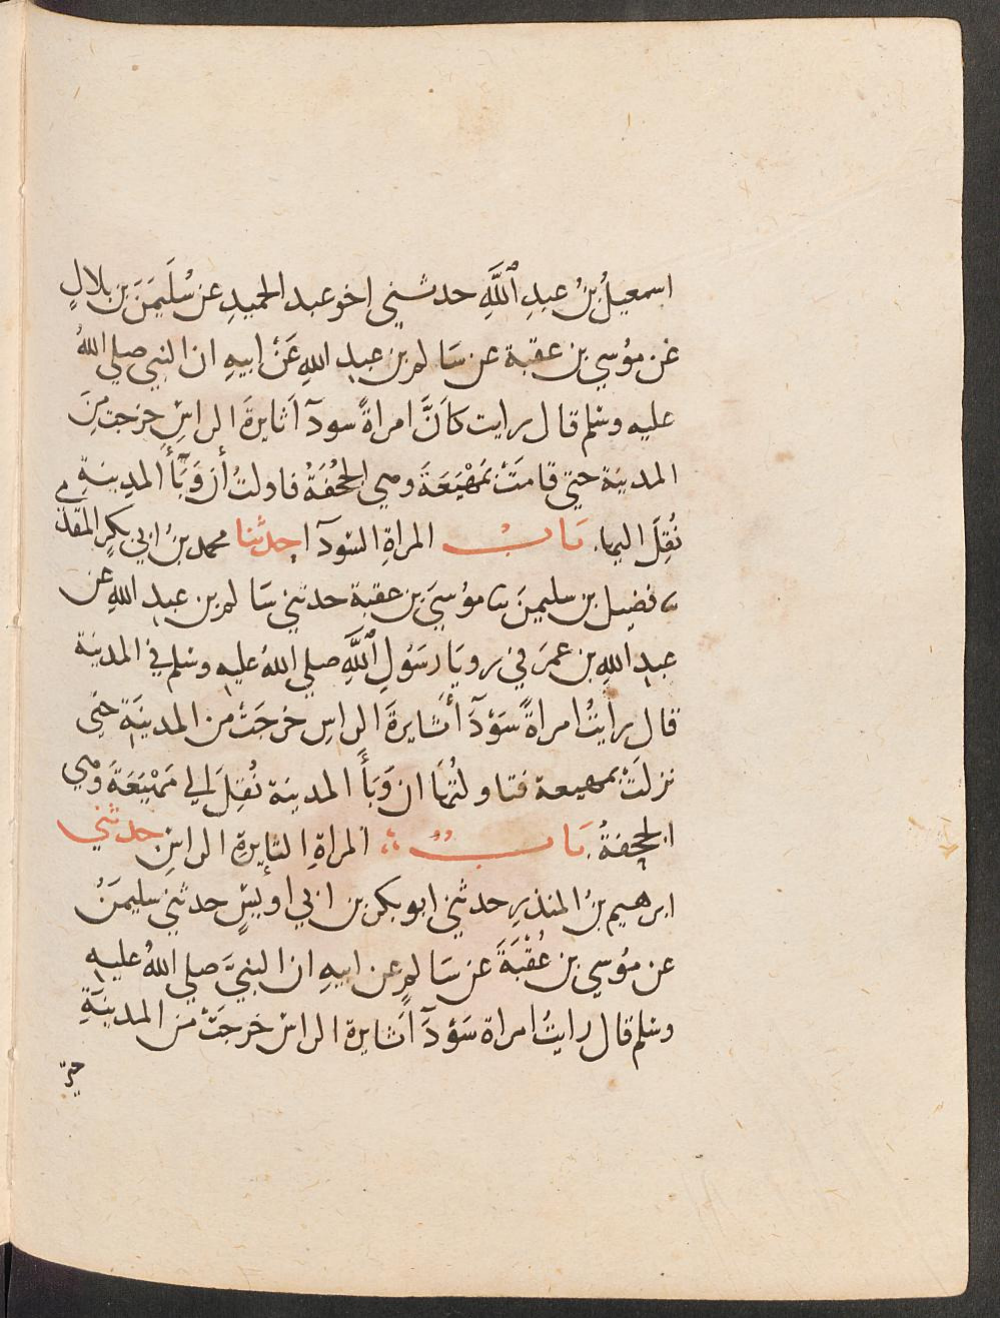 اسمعيلُ بنُ عبدِ ٱللَّهِ حدثني اخو عبد الحميدِ عن سُلَيمَنَ بن بلالٍ
عن مؤسي بن عقبة عن سَالم بن عبدِ اللهِ عَنْ ابيهِ ان النبي صلي اللهُ
عليه وسلم قال رايت كاَنَّ امراةً سودآ ثايرةَ الراسِ خرجت مِنَ
المدينة حتي قامَتْ بمَهْيَعَةَ وهي الجُحْفَةُ فاولتُ أن وَبَأَ المدِينةِ
نُقِلَ اليها. بَابْ المراةِ السَّودآ حدثنا محمد بنُ ابي بكرٍ المقدَّمي
نا فضيل بن سليمنَ نا مؤسيَ بن عقبة حدثني سَالم بن عبدِ اللهِ عن
عبدِ اللهِ بن عمرَ في رويَا رَسُولِ ٱللَّهِ صلي اللهُ عليه وسلم في المدينة
قال رأيتُ امراةً سَوْدَآ ثايرةَ الراسِ خرجَتْ من المدينَةِ حتي
نزلَتْ بمهيعة فتاولتُهَا ان وَبَأَ المدينة نُقِلَ الي مَهْيَعَةَ وهي
الجحفةُ. بَابٌ المراةِ الثايرةِ الراسِ حدثني
ابرهيم بنُ المنذرِ حدثني ابو بكر بن ابي اويسٍ حدثني سليمنُ
عن مؤسي بن عُقْبَةَ عن سَالمٍ عن ابيهِ ان النبيَّ صلي اللهُ عليهِ
وسلم قال رايتُ امراة سَوْدَآ ثايرة الراسِ خرجَتْ من المدينَةِ